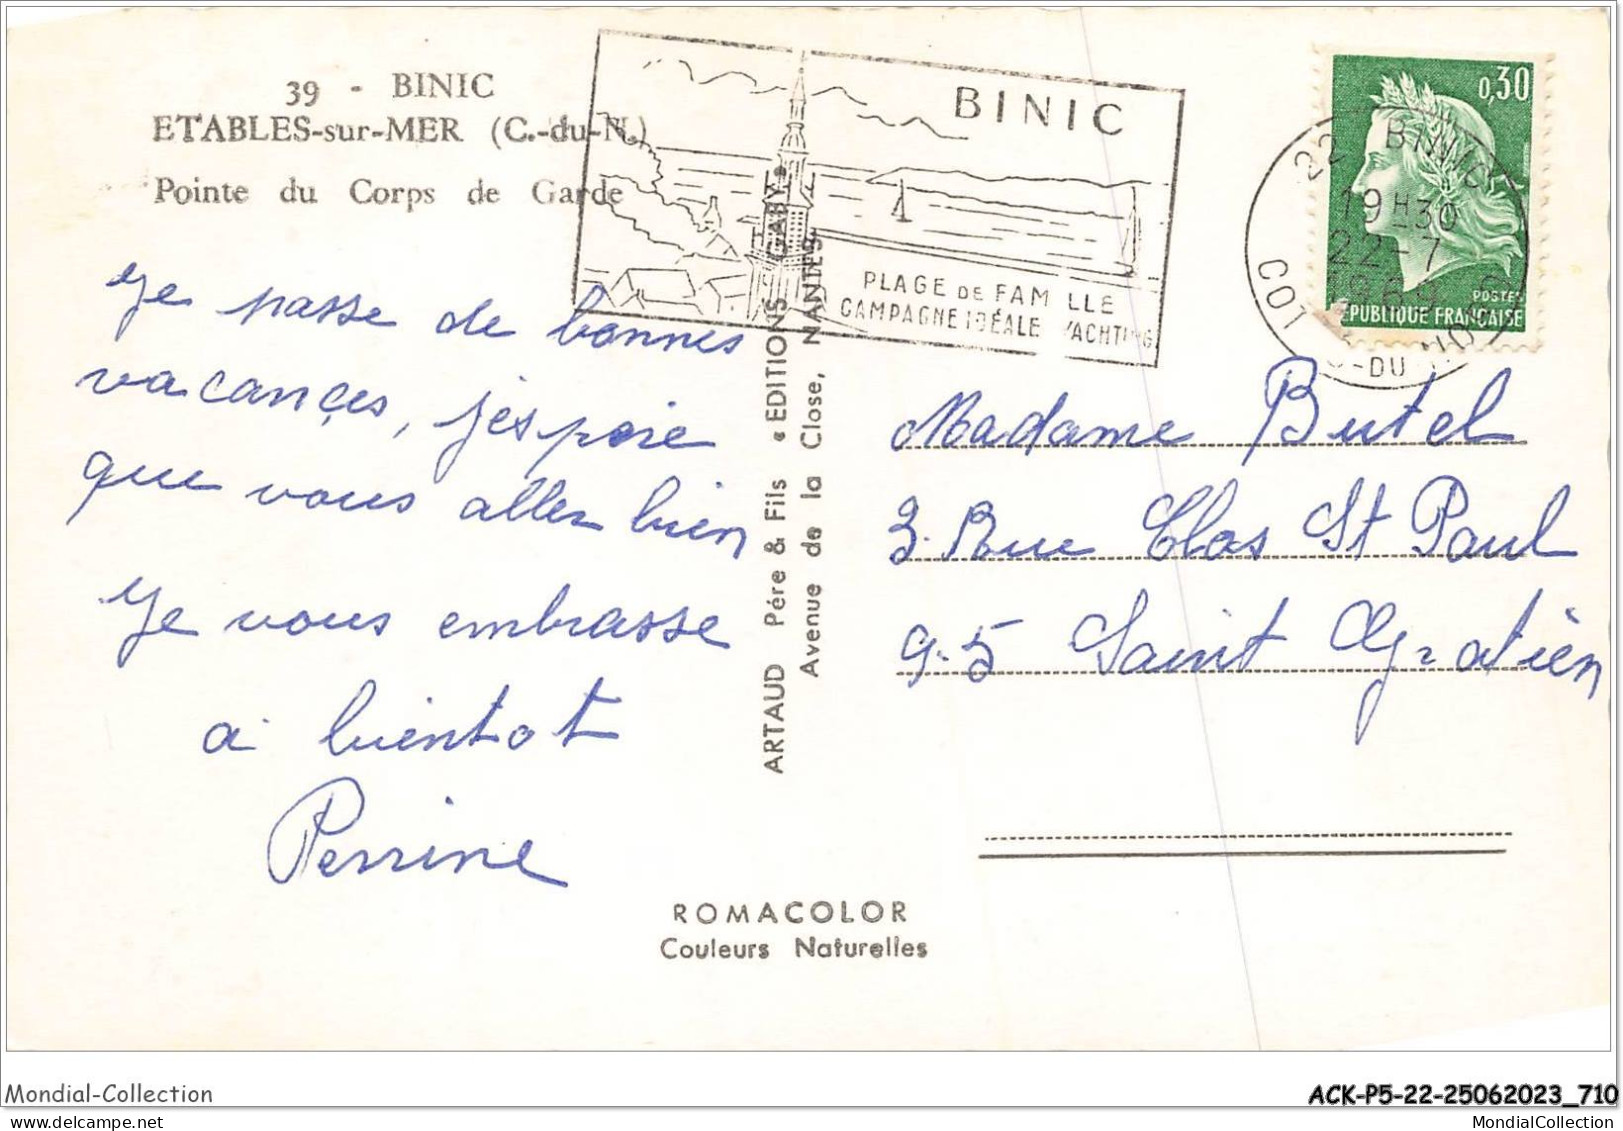 39 - BINIC
ETABLES-sur-MER (C.-du-N.)
Pointe du Corps de Garde
BINIC
PLAGE DE FAM LLE
CAMPAGNE IDÉALE YACHTING
0,30
POSTES
REPUBLIQUE FRANÇAISE
22 BINIC
19H30
22-7
1969
COT S-DU-NO
Je passe de bonnes
vacançes, j'espère
que vous allez bien
Je vous embrasse
a bientot
Perrine
ARTAUD Père & Fils « EDITIONS GABY »
Avenue de la Close, NANTES
Madame Butel
3. Rue Clos St Paul
95 Saint Gratien
ROMACOLOR
Couleurs Naturelles
Mondial-Collection
ACK-P5-22-25062023_710
MondialCollection